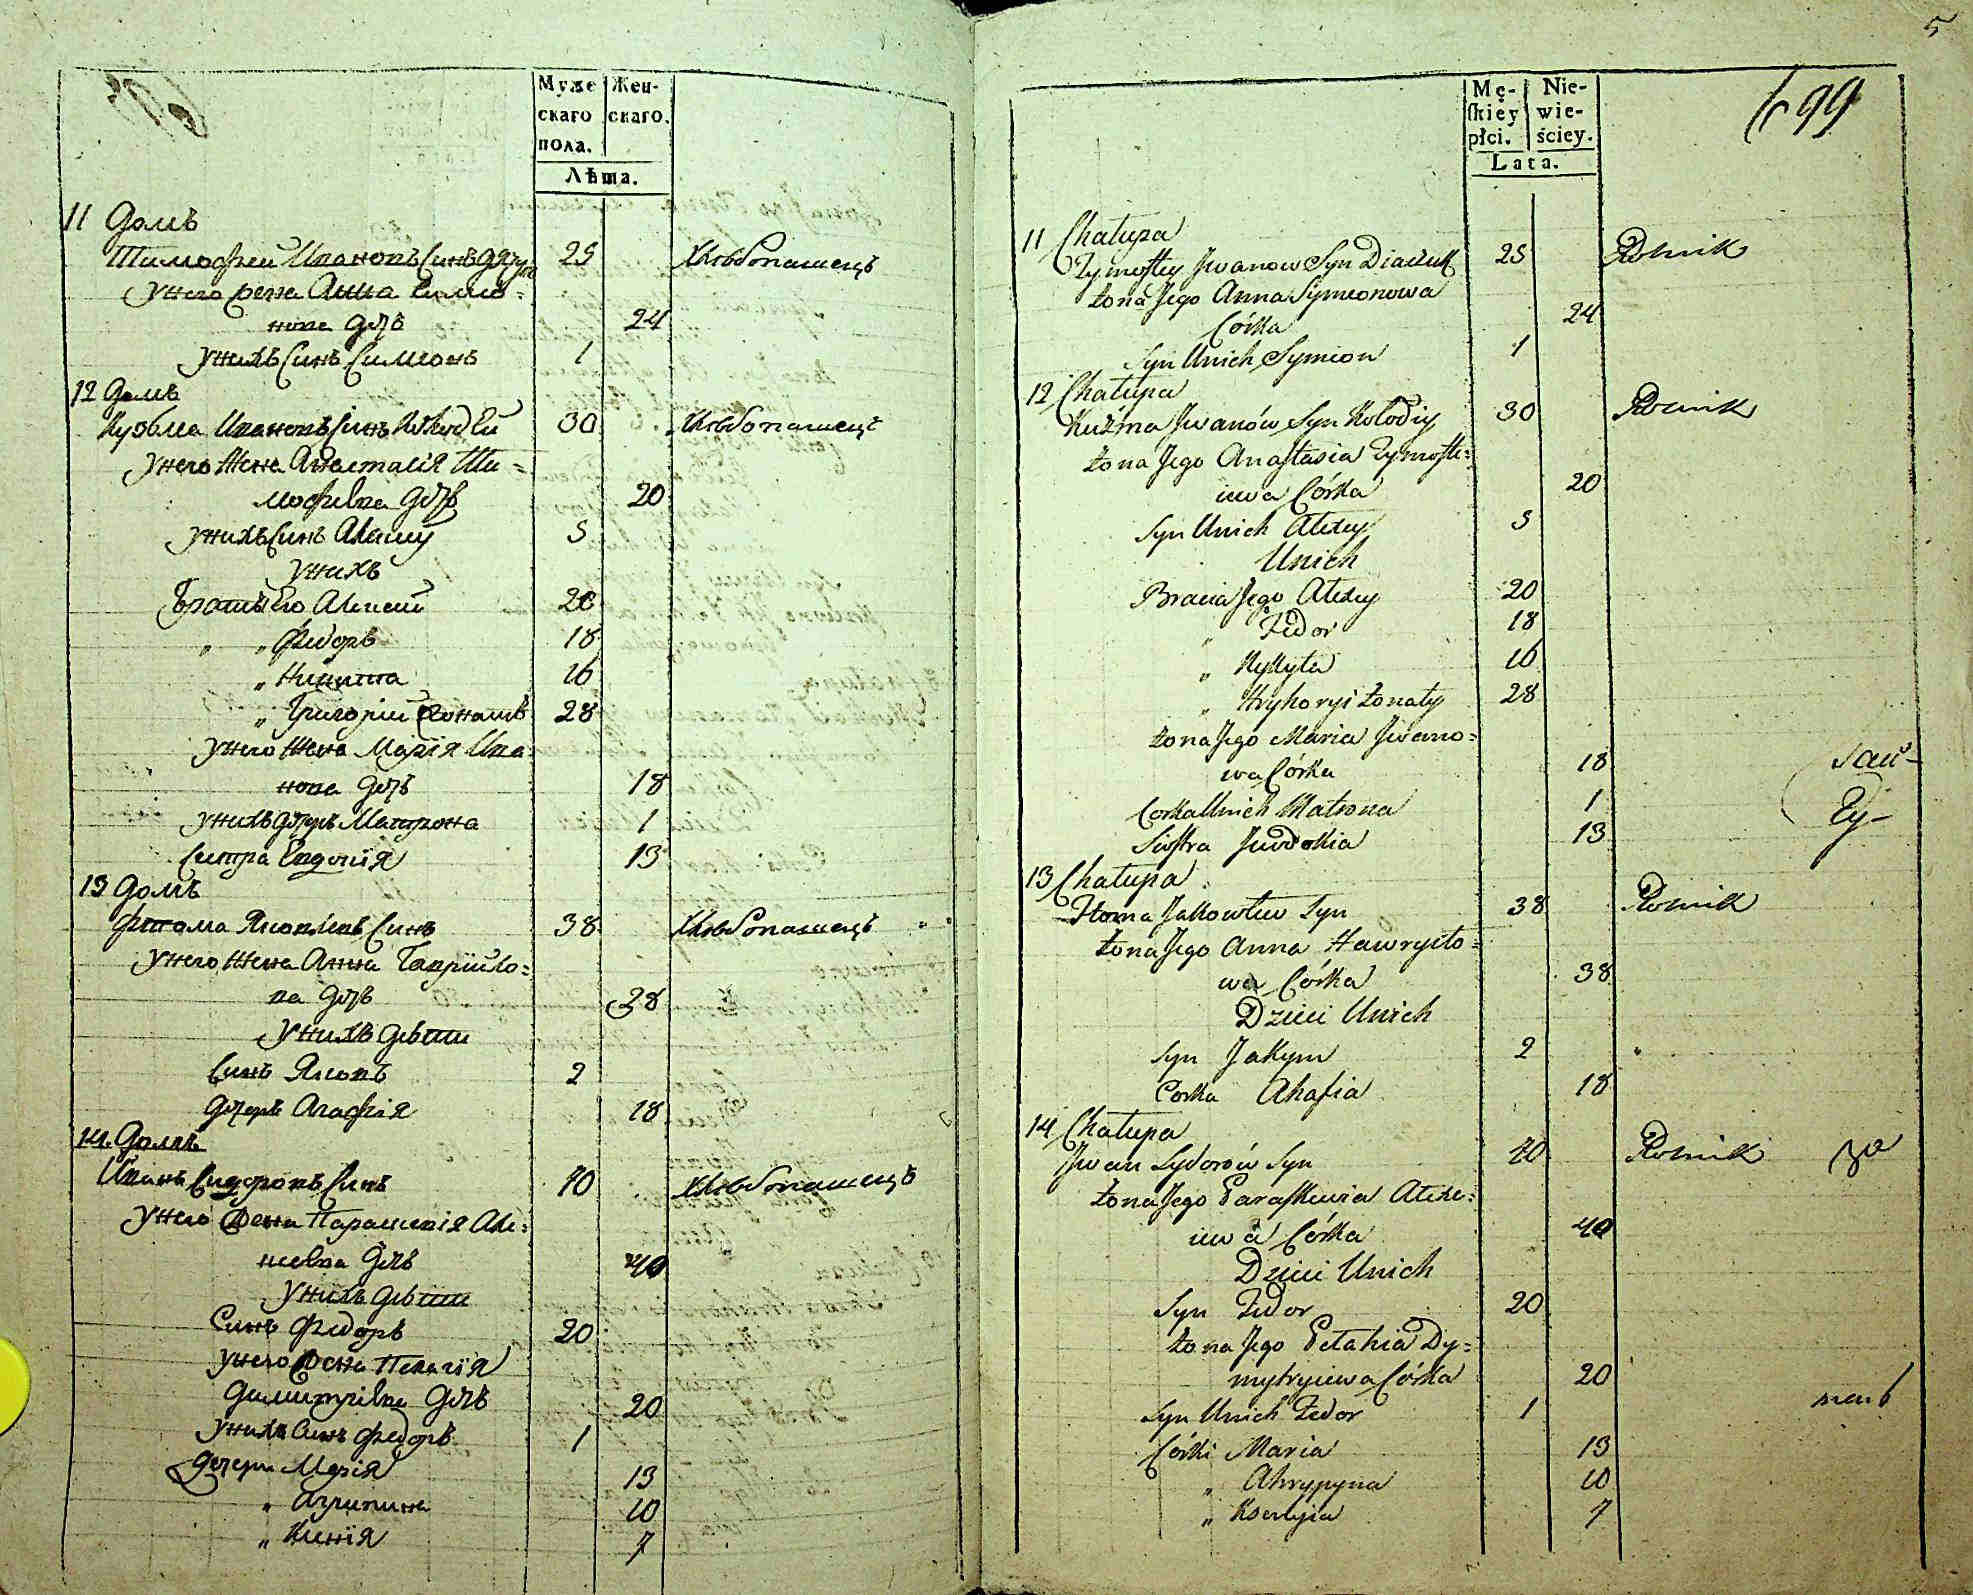 Муже
скаго
пола.
Жен-
скаго.
Лѣта.
11 Домъ
Тимофей Ивановъ Синъ Дячук 25 Хлѣбопашецъ
У него жена Анна Симио=
нова дочь 24
У нихъ Синъ Симионъ 1
12 Домъ
Кузма Ивановъ Синъ Колодѣй 30 Хлѣбопашецъ
У него жена Анастасія Ти=
мофѣевна дочь 20
У нихъ Синъ 5
У нихъ
Братья Его Алексей 20
" " Федоръ 18
" Никита 16
" Григорій Жонатъ 28
У него жена Марія Ива
нова дочь 18
У нихъ дочеръ Матрона 1
Систра Евдокія 13
13 Домъ
Фтома Яковлевъ Синъ 38 Хлѣбопашецъ
У него жена Анна Гаврійло=
ва дочь 28
У нихъ дѣти
Синъ Яковъ 2
дочеръ Агафія 18
14. Домъ
Иванъ Сидоровъ Синъ 40 Хлѣбопашецъ
У него жена Параскевія Але=
ксевна дочь 40
У нихъ дѣти
Синъ Федоръ 20
У него жена Пелагія
Димитріевна дочь 20
У нихъ Синъ Федоръ 1
дочери Марія 13
" Агрипина 10
" Ксенія 7
5
699
Mę-
skiey
płci.
Nie-
wie-
ściey.
Lata.
11 Chałupa
Tymofiey Jwanow Syn Diaczuk 25 Rolnik
żona Jego Anna Symeonowa
Córka 24
Syn Unich Symion 1
12 Chałupa
Kuźma Jwanów Syn Kołodiy 30 Rolnik
żona Jego Anastasia Tymofie=
iewa Córka 20
Syn Unich Alexey 5
Unich
Bracia Jego Alexey 20
" Fedor 18
" Nykyta 16
" Hryhoryi żonaty 28
żona Jego Maria Jwano=
wa Córka 18
Corka Unich Matrona 1
Siostra Juwdokia 13
13 Chałupa
Ftoma Jakowlew Syn 38 Rolnik
żona Jego Anna Hawryło=
wa Córka 38
Dzieci Unich
Syn Jakym 2
Corka Ahafia 18
14 Chałupa
Jwan Sydorów Syn 40 Rolnik
żona Jego Paraskewia Alexe=
iewa Córka 40
Dzieci Unich
Syn Fedor 20
żona Jego Pelahia Dy=
mytryiewa Córka 20
Syn Unich Fedor 1
Córki Maria 13
" Ahrypyna 10
" Ksenyia 7